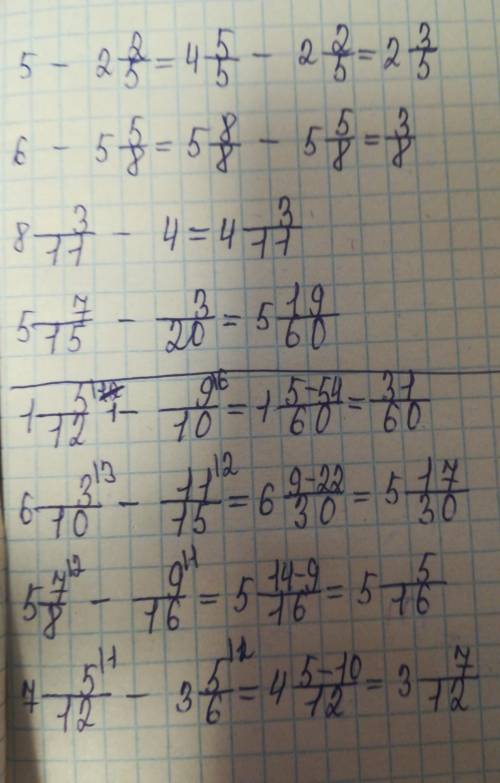 5 - 2 2/5 = 4 5/5 - 2 2/5 = 2 3/5
6 - 5 5/8 = 5 8/8 - 5 5/8 = 3/8
8 3/11 - 4 = 4 3/11
5 7/15 - 3/20 = 5 19/60
1 5/12 - 9/10 = 1 5-54/60 = 31/60
6 3/10 - 11/15 = 6 9-22/30 = 5 17/30
5 7/8 - 9/16 = 5 14-9/16 = 5 5/16
7 5/12 - 3 5/6 = 4 5-10/12 = 3 7/12